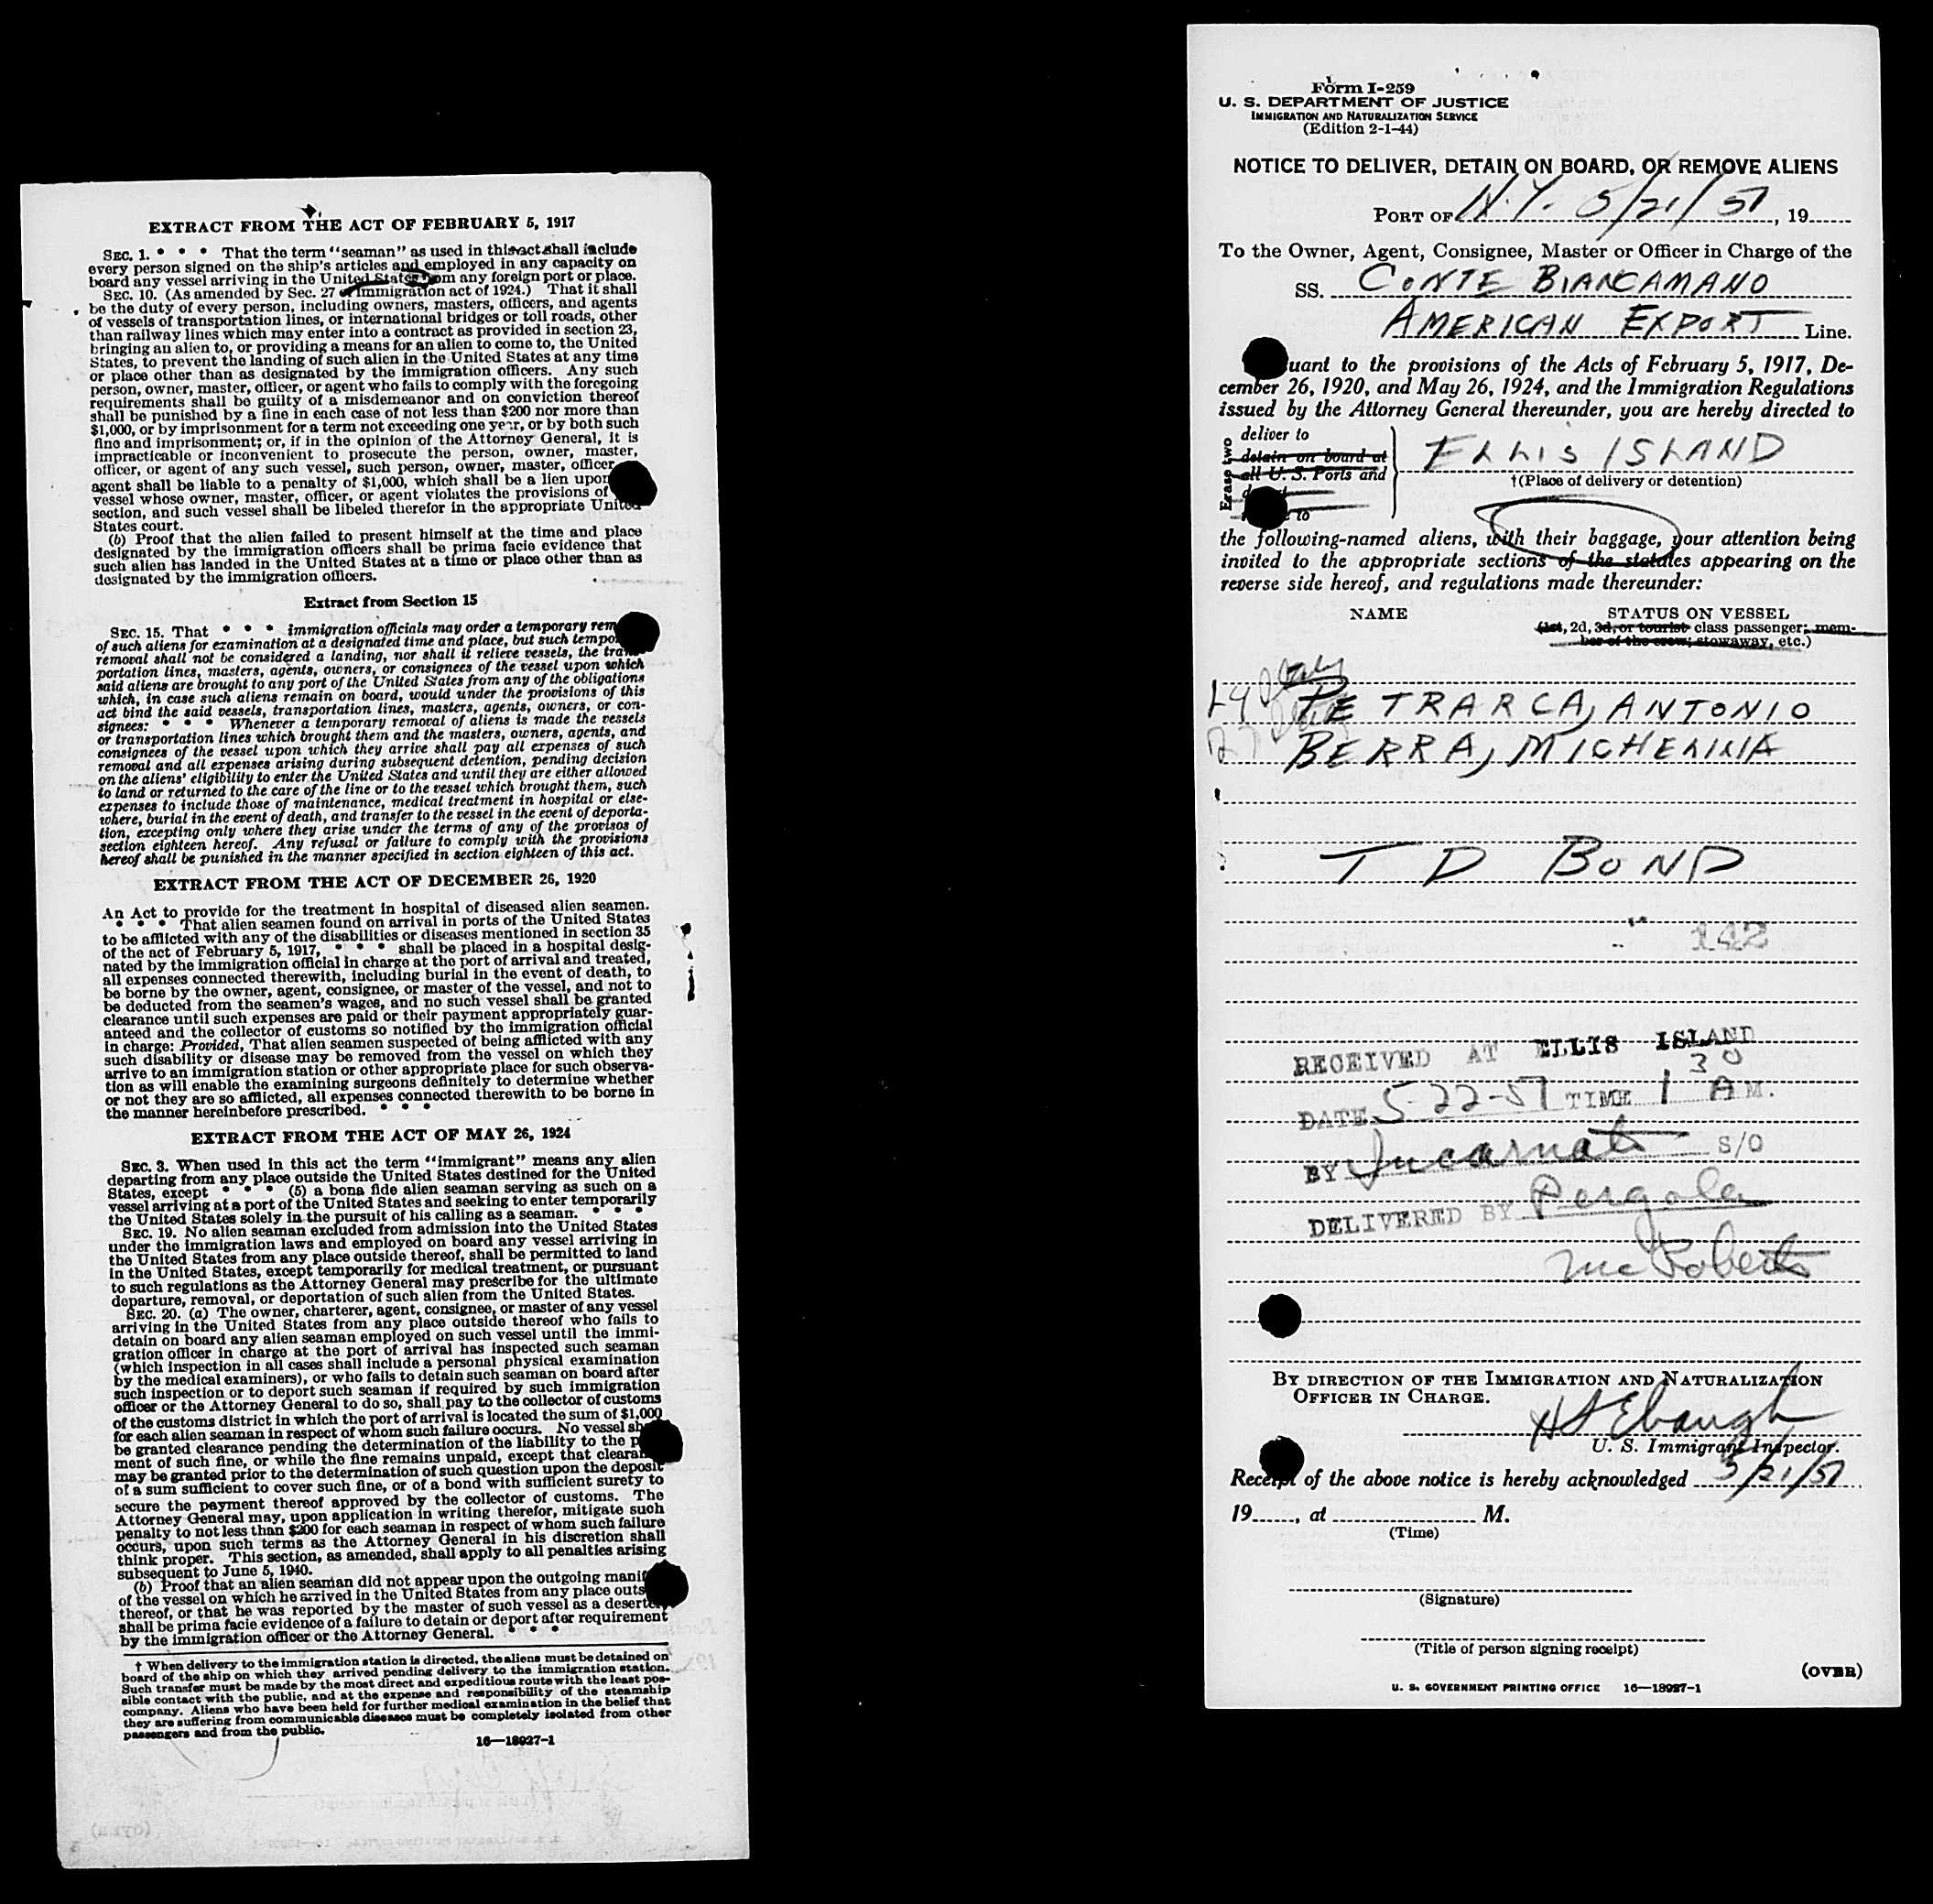 EXTRACT FROM THE ACT OF FEBRUARY 5, 1917
SEC. 1. * * * That the term "seaman" as used in this act shall include
every person signed on the ship's articles and employed in any capacity on
board any vessel arriving in the United States from any foreign port or place.
SEC. 10. (As amended by Sec. 27 of immigration act of 1924.) That it shall
be the duty of every person, including owners, masters, officers, and agents
of vessels of transportation lines, or international bridges or toll roads, other
than railway lines which may enter into a contract as provided in section 23,
bringing an alien to, or providing a means for an alien to come to, the United
States, to prevent the landing of such alien in the United States at any time
or place other than as designated by the immigration officers. Any such
person, owner, master, officer, or agent who fails to comply with the foregoing
requirements shall be guilty of a misdemeanor and on conviction thereof
shall be punished by a fine in each case of not less than $200 nor more than
$1,000, or by imprisonment for a term not exceeding one year, or by both such
fine and imprisonment; or, if in the opinion of the Attorney General, it is
impracticable or inconvenient to prosecute the person, owner, master,
officer, or agent of any such vessel, such person, owner, master, officer
agent shall be liable to a penalty of $1,000, which shall be a lien upon
vessel whose owner, master, officer, or agent violates the provisions of
section, and such vessel shall be libeled therefor in the appropriate United
States court.
(b) Proof that the alien failed to present himself at the time and place
designated by the immigration officers shall be prima facie evidence that
such alien has landed in the United States at a time or place other than as
designated by the immigration officers.
Extract from Section 15
SEC. 15. That * * * immigration officials may order a temporary rem
of such aliens for examination at a designated time and place, but such tempo
removal shall not be considered a landing, nor shall it relieve vessels, the trans-
portation lines, masters, agents, owners, or consignees of the vessel upon which
said aliens are brought to any port of the United States from any of the obligations
which, in case such aliens remain on board, would under the provisions of this
act bind the said vessels, transportation lines, masters, agents, owners, or con-
signees: * * * Whenever a temporary removal of aliens is made the vessels
or transportation lines which brought them and the masters, owners, agents, and
consignees of the vessel upon which they arrive shall pay all expenses of such
removal and all expenses arising during subsequent detention, pending decision
on the aliens' eligibility to enter the United States and until they are either allowed
to land or returned to the care of the line or to the vessel which brought them, such
expenses to include those of maintenance, medical treatment in hospital or else-
where, burial in the event of death, and transfer to the vessel in the event of deporta-
tion, excepting only where they arise under the terms of any of the provisos of
section eighteen hereof. Any refusal or failure to comply with the provisions
hereof shall be punished in the manner specified in section eighteen of this act.
EXTRACT FROM THE ACT OF DECEMBER 26, 1920
An Act to provide for the treatment in hospital of diseased alien seamen.
* * * That alien seamen found on arrival in ports of the United States
to be afflicted with any of the disabilities or diseases mentioned in section 35
of the act of February 5, 1917, * * * shall be placed in a hospital desig-
nated by the immigration official in charge at the port of arrival and treated,
all expenses connected therewith, including burial in the event of death, to
be borne by the owner, agent, consignee, or master of the vessel, and not to
be deducted from the seamen's wages, and no such vessel shall be granted
clearance until such expenses are paid or their payment appropriately guar-
anteed and the collector of customs so notified by the immigration official
in charge: Provided, That alien seamen suspected of being afflicted with any
such disability or disease may be removed from the vessel on which they
arrive to an immigration station or other appropriate place for such observa-
tion as will enable the examining surgeons definitely to determine whether
or not they are so afflicted, all expenses connected therewith to be borne in
the manner hereinbefore prescribed. * * *
EXTRACT FROM THE ACT OF MAY 26, 1924
SEC. 3. When used in this act the term "immigrant" means any alien
departing from any place outside the United States destined for the United
States, except * * * (5) a bona fide alien seaman serving as such on a
vessel arriving at a port of the United States and seeking to enter temporarily
the United States solely in the pursuit of his calling as a seaman. * * *
SEC. 19. No alien seaman excluded from admission into the United States
under the immigration laws and employed on board any vessel arriving in
the United States from any place outside thereof, shall be permitted to land
in the United States, except temporarily for medical treatment, or pursuant
to such regulations as the Attorney General may prescribe for the ultimate
departure, removal, or deportation of such alien from the United States.
SEC. 20. (a) The owner, charterer, agent, consignee, or master of any vessel
arriving in the United States from any place outside thereof who fails to
detain on board any alien seaman employed on such vessel until the immi-
gration officer in charge at the port of arrival has inspected such seaman
(which inspection in all cases shall include a personal physical examination
by the medical examiners), or who fails to detain such seaman on board after
such inspection or to deport such seaman if required by such immigration
officer or the Attorney General to do so, shall pay to the collector of customs
of the customs district in which the port of arrival is located the sum of $1,000
for each alien seaman in respect of whom such failure occurs. No vessel sh
be granted clearance pending the determination of the liability to the p
ment of such fine, or while the fine remains unpaid, except that clearan
may be granted prior to the determination of such question upon the deposit
of a sum sufficient to cover such fine, or of a bond with sufficient surety to
secure the payment thereof approved by the collector of customs. The
Attorney General may, upon application in writing therefor, mitigate such
penalty to not less than $200 for each seaman in respect of whom such failure
occurs, upon such terms as the Attorney General in his discretion shall
think proper. This section, as amended, shall apply to all penalties arising
subsequent to June 5, 1940.
(b) Proof that an alien seaman did not appear upon the outgoing manif
of the vessel on which he arrived in the United States from any place outs
thereof, or that he was reported by the master of such vessel as a deserter
shall be prima facie evidence of a failure to detain or deport after requirement
by the immigration officer or the Attorney General. * * *
† When delivery to the immigration station is directed, the aliens must be detained on
board of the ship on which they arrived pending delivery to the immigration station.
Such transfer must be made by the most direct and expeditious route with the least pos-
sible contact with the public, and at the expense and responsibility of the steamship
company. Aliens who have been held for further medical examination in the belief that
they are suffering from communicable diseases must be completely isolated from other
passengers and from the public.
16—18927-1
Form I-259
U. S. DEPARTMENT OF JUSTICE
IMMIGRATION AND NATURALIZATION SERVICE
(Edition 2-1-44)
NOTICE TO DELIVER, DETAIN ON BOARD, OR REMOVE ALIENS
PORT OF N.Y. 5/21/51, 19
To the Owner, Agent, Consignee, Master or Officer in Charge of the
SS. CONTE BIANCAMANO
AMERICAN EXPORT Line.
uant to the provisions of the Acts of February 5, 1917, De-
cember 26, 1920, and May 26, 1924, and the Immigration Regulations
issued by the Attorney General thereunder, you are hereby directed to
Erase two
deliver to
detain on board at
all U. S. Ports and
to
ELLIS ISLAND
†(Place of delivery or detention)
the following-named aliens, with their baggage, your attention being
invited to the appropriate sections of the statutes appearing on the
reverse side hereof, and regulations made thereunder:
NAME STATUS ON VESSEL
(1st, 2d, 3d, or tourist class passenger; mem-
ber of the crew; stowaway, etc.)
PETRARCA, ANTONIO
BERRA, MICHELINA
T D BOND
142
RECEIVED AT ELLIS ISLAND
DATE 5-22-51 TIME 1 30 A M.
BY Incarnato S/O
DELIVERED BY Pergola
McRoberts
BY DIRECTION OF THE IMMIGRATION AND NATURALIZATION
OFFICER IN CHARGE.
H Ebaugh
U. S. Immigrant Inspector.
Receipt of the above notice is hereby acknowledged 5/21/51
19, at M.
(Time)
(Signature)
(Title of person signing receipt)
(OVER)
U. S. GOVERNMENT PRINTING OFFICE 16—18927-1